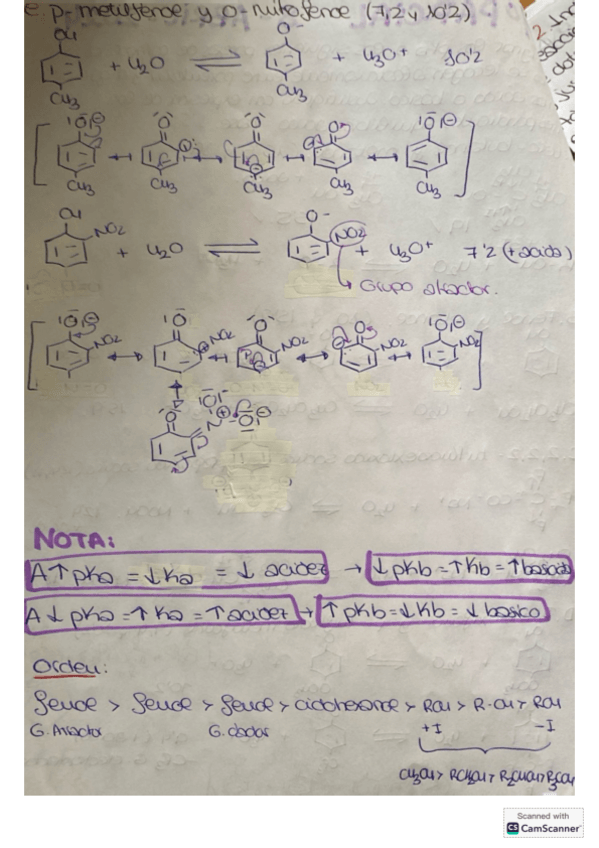 e. p-metilfenol y o-nitrofenol (7,2 y 10'2)
OH
+ H2O ⇌ + H3O+ 10'2
CH3 CH3
CH3 CH3 CH3 CH3 CH3
OH O-
NO2 NO2
+ H2O ⇌ + H3O+ 7'2 (+ acido)
Grupo atractor.
NO2 NO2 NO2 NO2 NO2
NOTA:
A ↑ pKa = ↓ Ka = ↓ acidez → ↓ pKb = ↑ Kb = ↑ basicidad
A ↓ pKa = ↑ Ka = ↑ acidez → ↑ pKb = ↓ Kb = ↓ basico
Orden:
Fenol > Fenol > Fenol > ciclohexanol > ROH > R-OH > ROH
G. Atractor G. dador +I -I
CH3OH > RCH2OH > R2CHOH > R3COH
Scanned with
CS CamScanner